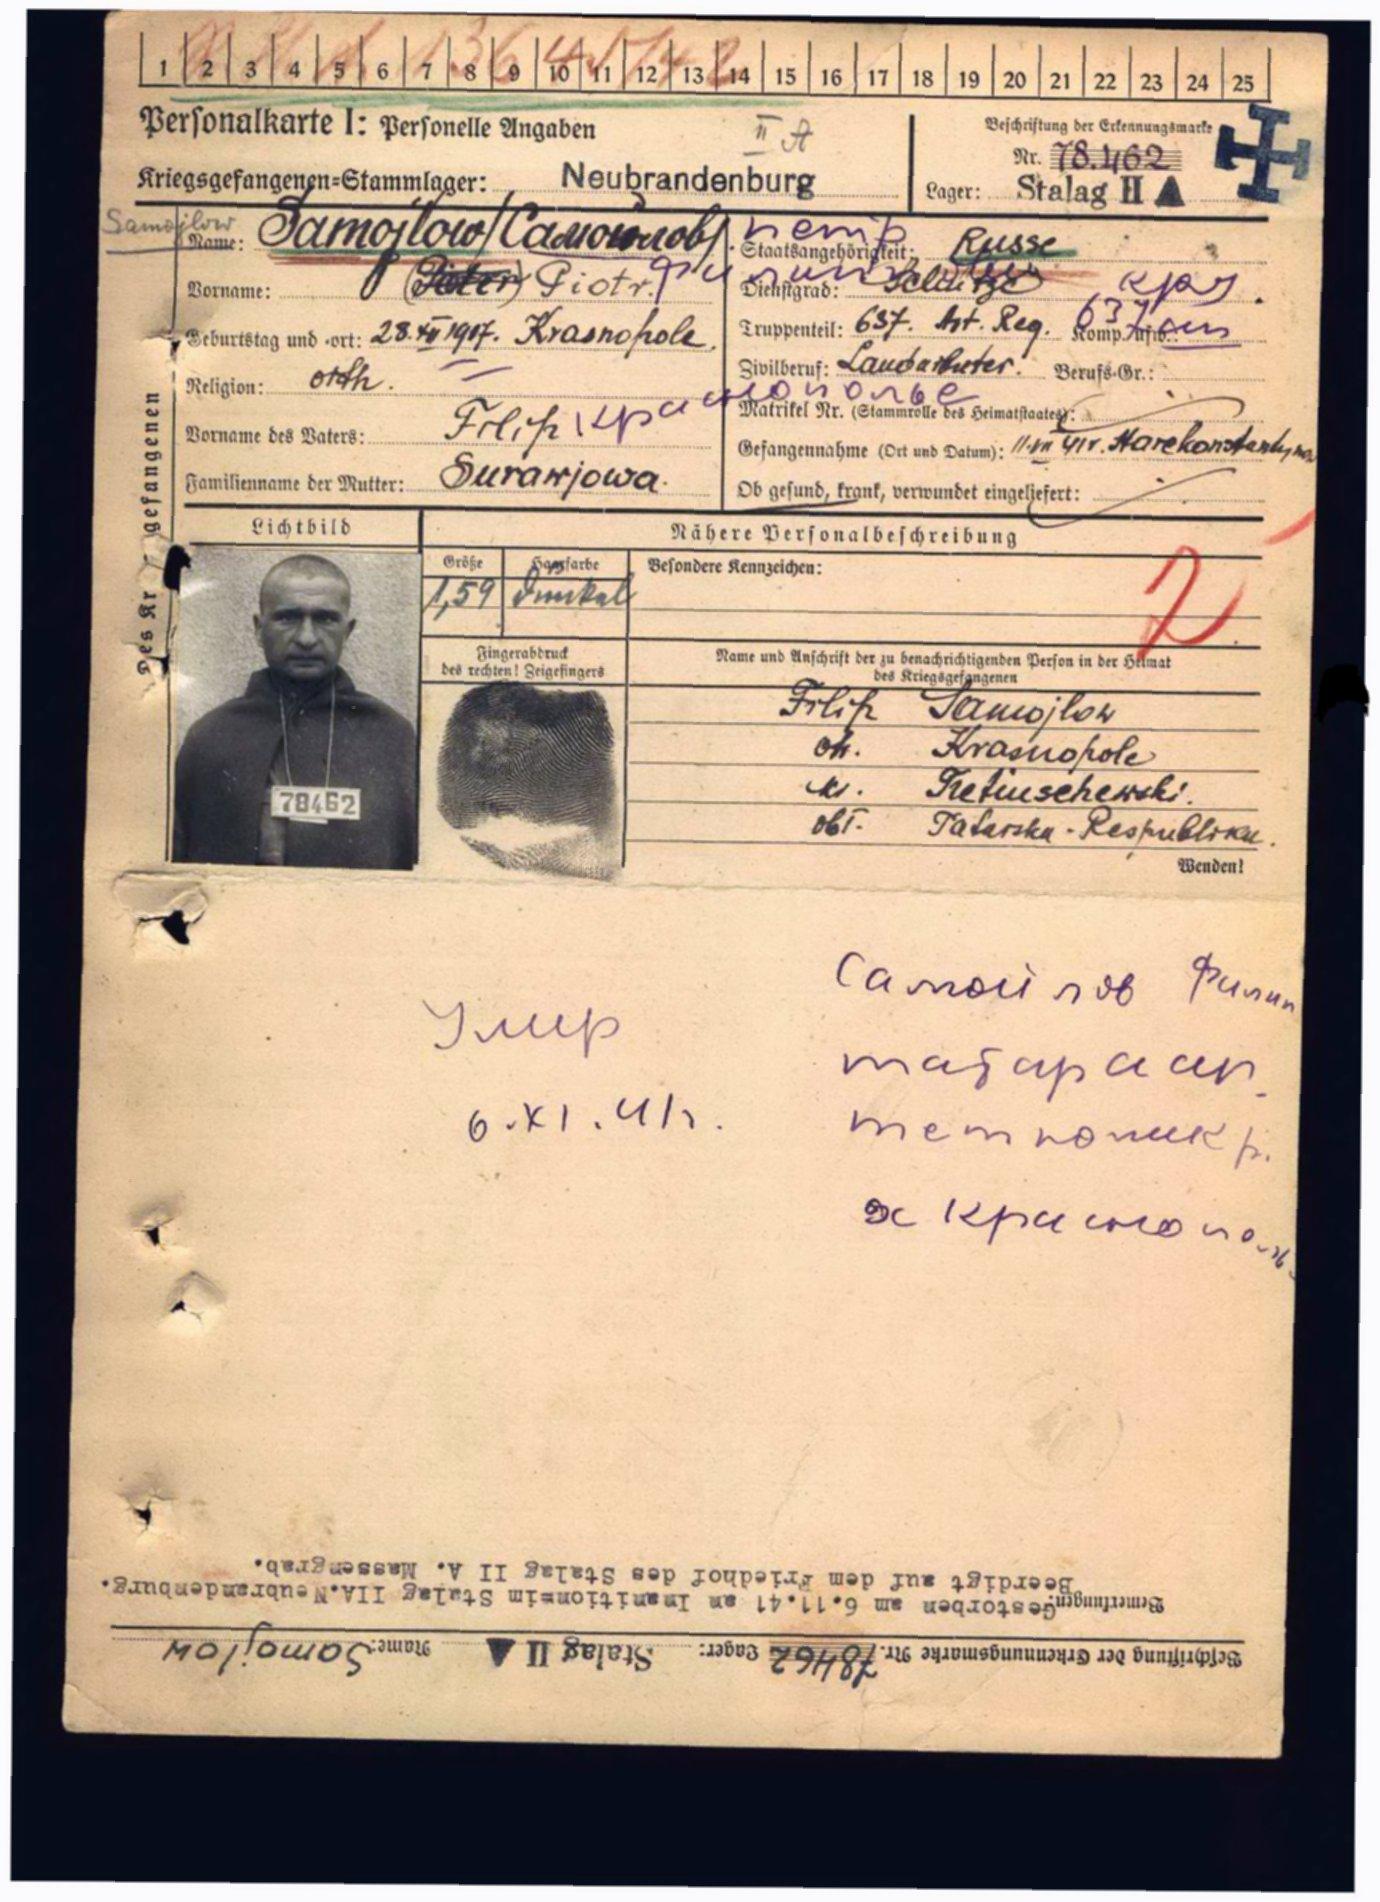 1 2 3 4 5 6 7 8 9 10 11 12 13 14 15 16 17 18 19 20 21 22 23 24 25
Personalkarte I: Personelle Angaben
II A
Beschriftung der Erkennungsmarke
Nr. 78462
Kriegsgefangenen-Stammlager: Neubrandenburg
Lager: Stalag II A
Samojlow
Name: Samojlow / Самойлов / Петр
Staatsangehörigkeit: Russe
Vorname: (Peter) Piotr.
Dienstgrad: Schütze кра
Geburtstag und -ort: 28.XII 1917. Krasnopole.
Truppenteil: 637. Art. Reg. Komp. usw.: 637
Religion: orth.
Zivilberuf: Landarbeiter. Berufs-Gr.:
Краснополье
Matrikel Nr. (Stammrolle des Heimatstaates):
Vorname des Vaters: Filip
Gefangennahme (Ort und Datum): 11.VII 41r. Starekonstantynow
Familienname der Mutter: Surawjowa.
Ob gesund, krank, verwundet eingeliefert:
Des Kr gefangenen
Lichtbild
Nähere Personalbeschreibung
Größe Haarfarbe Besondere Kennzeichen:
1,59 dunkel
2
Fingerabdruck
des rechten! Zeigefingers
Name und Anschrift der zu benachrichtigenden Person in der Heimat
des Kriegsgefangenen
Filip Samojlow
Krasnopole
obł. Tatarska-Respublika.
78462
Wenden!
Самойлов Филип
Умер
6.XI.41г.
х Краснополье
Bemerkungen: Gestorben am 6.11.41 an Inanition im Stalag IIA. Neubrandenburg.
Beerdigt auf dem Friedhof des Stalag II A. Massengrab.
Beschriftung der Erkennungsmarke Nr. 78462 Lager: Stalag II A Name: Samojlow